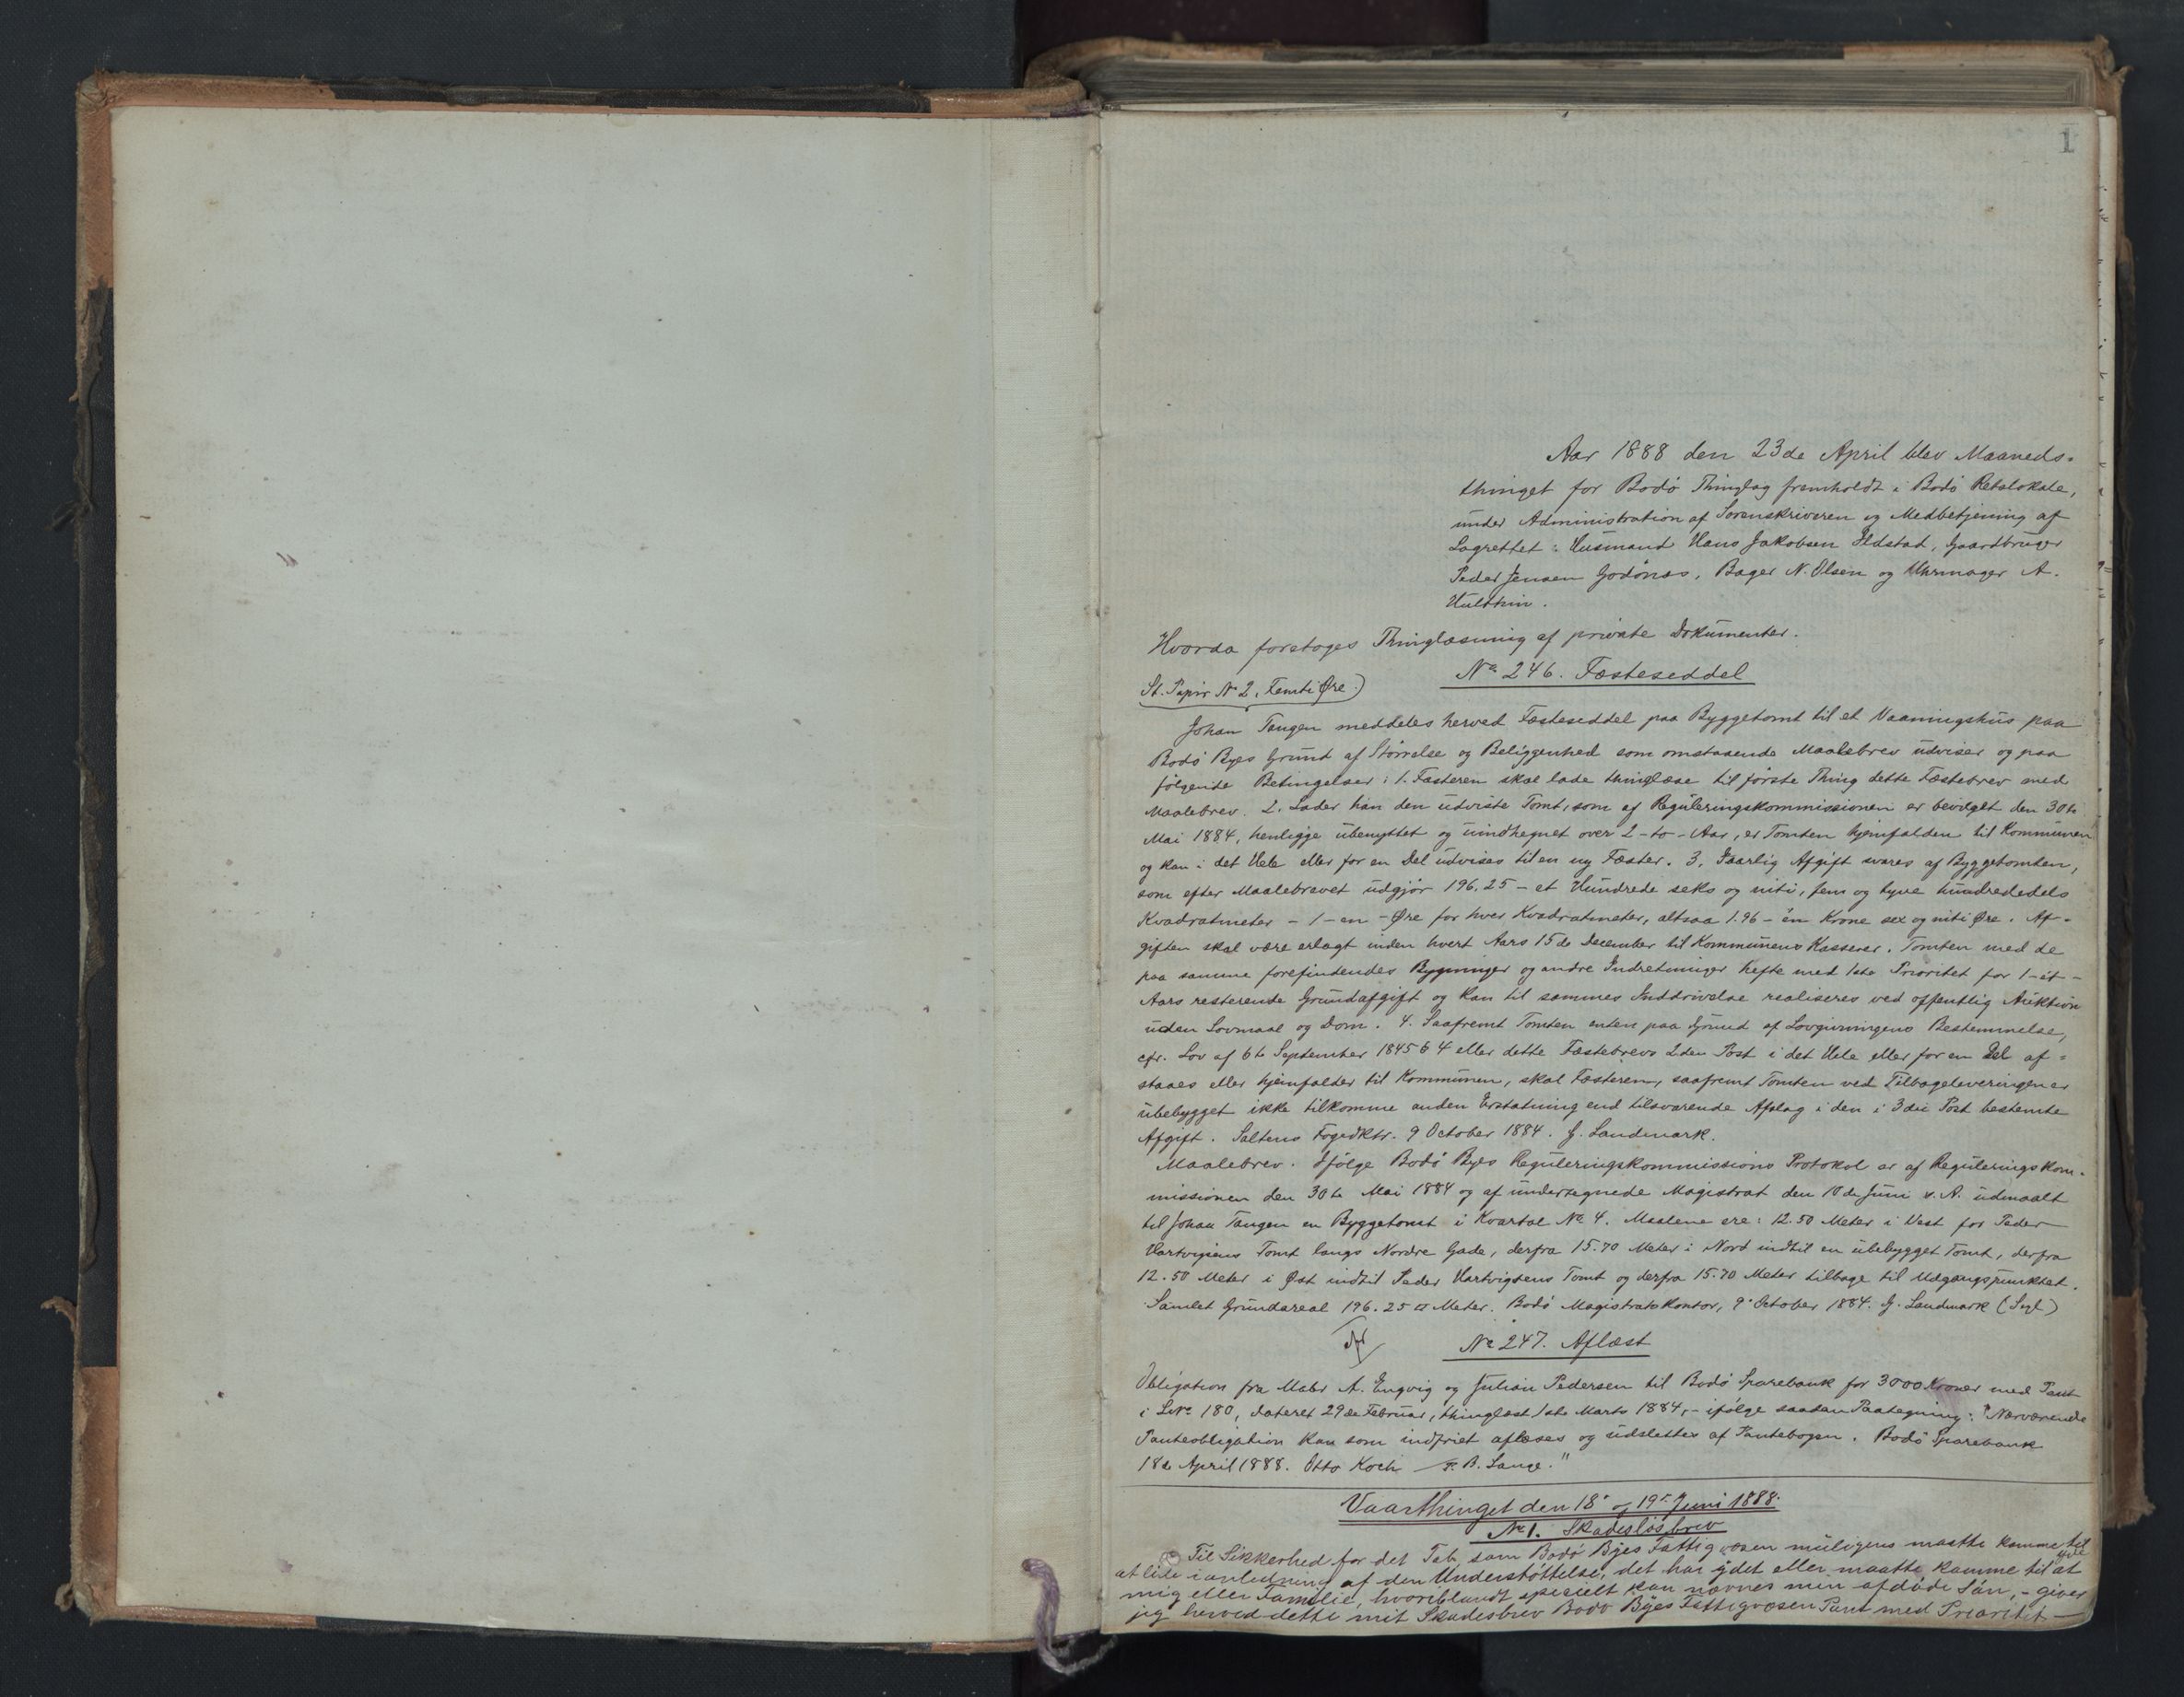 1
Aar 1888 den 23de April blev Maaneds-
thinget for Bodö Thinglag fremholdt i Bodö Retslokale,
under Administration af Sorenskriveren og Medbetjening af
Lagrettet: Husmand Hans Jakobsen Ildstad, Gaardbruger
Peder Jensen Godönes, Bager N. Olsen og Uhrmager A.
Hulthin.
Hvorda foretoges Thinglæsning af private Dokumenter.
No 246. Fæsteseddel
St. Papir No 2, Femti Øre.)
Johan Tangen meddeles herved Fæsteseddel paa Byggetomt til et Vaaningshus paa
Bodö Byes Grund af Størrelse og Beliggenhed som omstaaende Maalebrev udviser og paa
følgende Betingelser: 1. Fæsteren skal lade thinglæse til første Thing dette Fæstebrev med
Maalebrev. 2. Lader han den udviste Tomt, som af Reguleringskommissionen er bevilget den 30te
Mai 1884, henligge ubenyttet og uindhegnet over 2-to-Aar, er Tomten hjemfalden til Kommunen
og kan i det Hele eller for en Del udvises til en ny Fæster. 3. Aarlig Afgift svares af Byggetomten,
som efter Maalebrevet udgjør 196.25 - et Hundrede seks og niti, fem og tyve hundrededels
Kvadratmeter - 1 - en - Øre for hver Kvadratmeter, altsaa 1.96 - en Krone sex og niti Øre. Af-
giften skal være erlagt inden hvert Aars 15de December til Kommunens Kasserer. Tomten med de
paa samme forefindendes Bygninger og andre Indretninger hefte med 1ste Prioritet for 1-et-
Aars resterende Grundafgift og kan til sammes Inddrivelse realiseres ved offentlig Auktion
uden Lovmaal og Dom. 4. Saafremt Tomten enten paa Grund af Lovgivningens Bestemmelse,
cfr. Lov af 6te September 1845 § 4 eller dette Fæstebrevs 2den Post i det Hele eller for en Del af-
staaes eller hjemfalder til Kommunen, skal Fæsteren, saafremt Tomten ved Tilbageleveringen er
ubebygget ikke tilkomme anden Erstatning end tilsvarende Afslag i den i 3die Post bestemte
Afgift. Saltens Fogedktr. 9 October 1884. G. Landmark.
Maalebrev. Ifølge Bodö Byes Reguleringskommissions Protokol er af Reguleringskom-
missionen den 30te Mai 1884 og af undertegnede Magistrat den 10de Juni s. A. udmaalt
til Johan Tangen en Byggetomt i Kvartal No 4. Maalene ere: 12.50 Meter i Vest for Peder
Hartvigsens Tomt langs Nordre Gade, derfra 15.70 Meter i Nord indtil en ubebygget Tomt, derfra
12.50 Meter i Øst indtil Peder Hartvigsens Tomt og derfra 15.70 Meter tilbage til Udgangspunktet.
Samlet Grundareal 196.25 □ Meter. Bodö Magistratskontor, 9 October 1884. G. Landmark (Segl)
No 247. Aflæst
Obligation fra A. Engvig og Julian Pedersen til Bodö Sparebank for 3000 Kroner med Pant
i L.No 180, dateret 29de Februar, thinglæst 1ste Marts 1884, - ifølge saadan Paategning: "Nærværende
Panteobligation kan som indfriet aflæses og udslettes af Pantebogen. Bodö Sparebank
18de April 1888. Otto Koch F. B. Lange."
Vaarthinget den 18de og 19de Juni 1888.
No 1. Skadesløsbrev
Til Sikkerhed for det Tab, som Bodö Byes Fattigvæsen muligens maatte komme til
at lide i anledning af den Understøttelse, det har ydet eller maatte komme til at yde
mig eller Familie, hvoriblandt specielt kan nævnes min afdøde Søn, - giver
jeg herved dette mit Skadesbrev Bodö Byes Fattigvæsen Pant med Prioritet